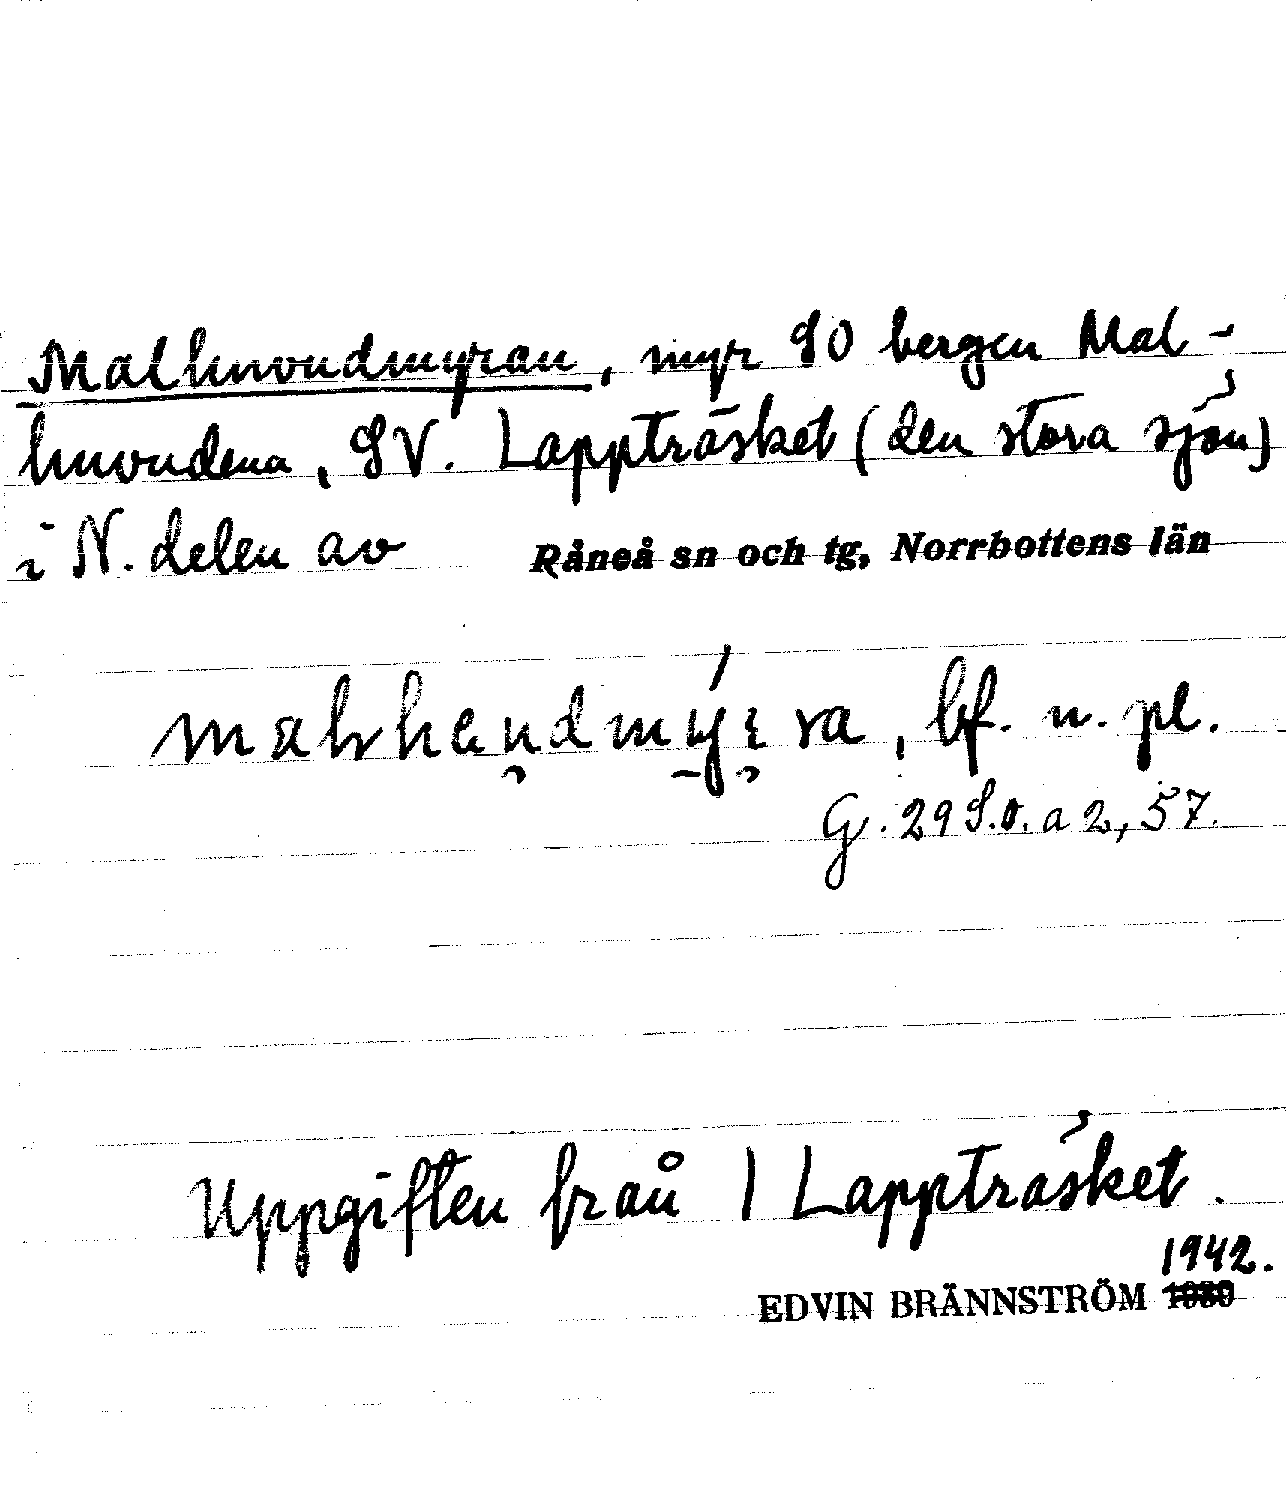 Malhuvudmyran, myr SO bergen Mal-
huvudena, SV. Lappträsket (den stora sjön)
i N. delen av Råneå sn och tg, Norrbottens län
, bf. n. pl.
G. 29 S.o. a 2, 57.
Uppgiften från 1 Lappträsket.
1942.
EDVIN BRÄNNSTRÖM